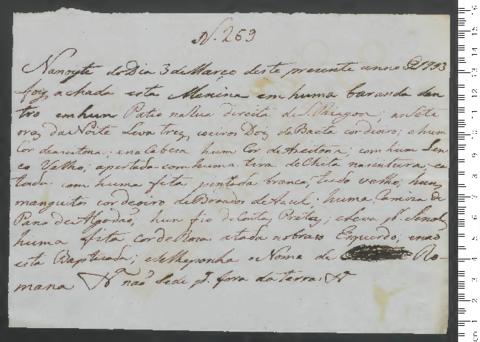 N. 263
Na noyte do Dia 3 de Março deste presente anno d 1793
foy achado esta Menina em huma baranda den
tro em hum Pateo na Rua Direita de S. Paço as sete
oras da Noite Leva trez coeiros Doz de Baeta cor de ; e hum
Cor de azeitona; e na Cabeça hum Cor de Azeitona; com hum Len
ço Velho; apertada com huma tira de Chita na sintura e a
com huma fita pintada branca, tudo velho, hum
manguito cor de de Azul; huma Camiza de
Pano de Algodão, hum fio de Contas Pretas; e leva pr Senal
huma fita cor de Roza atada no braço Esquerdo, e não
esta Baptizada; e se lhe ponha o Nome de Ro
mana Nº não Sede pª fora da terra; Nº